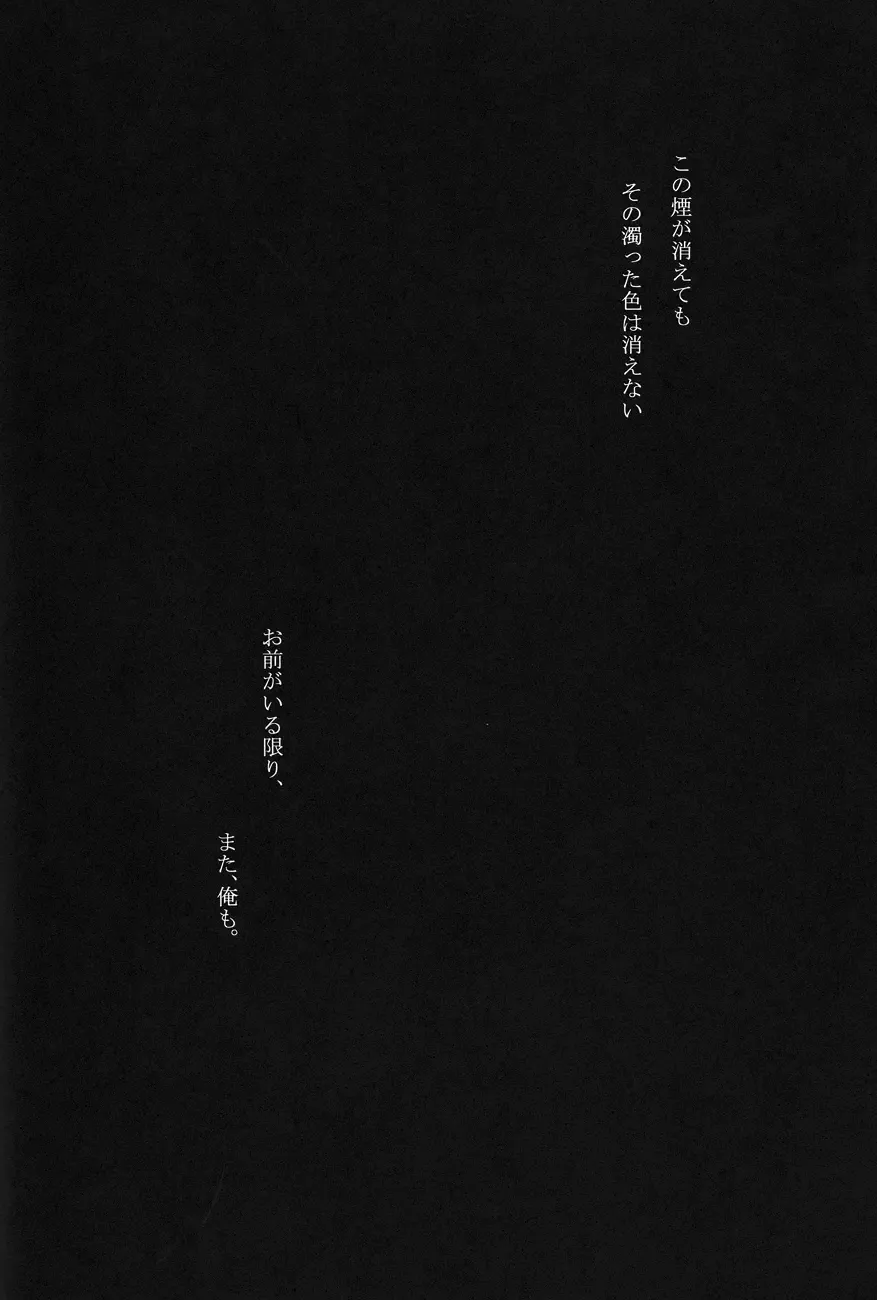 この煙が消えても
その濁った色は消えない
お前がいる限り、
また、俺も。